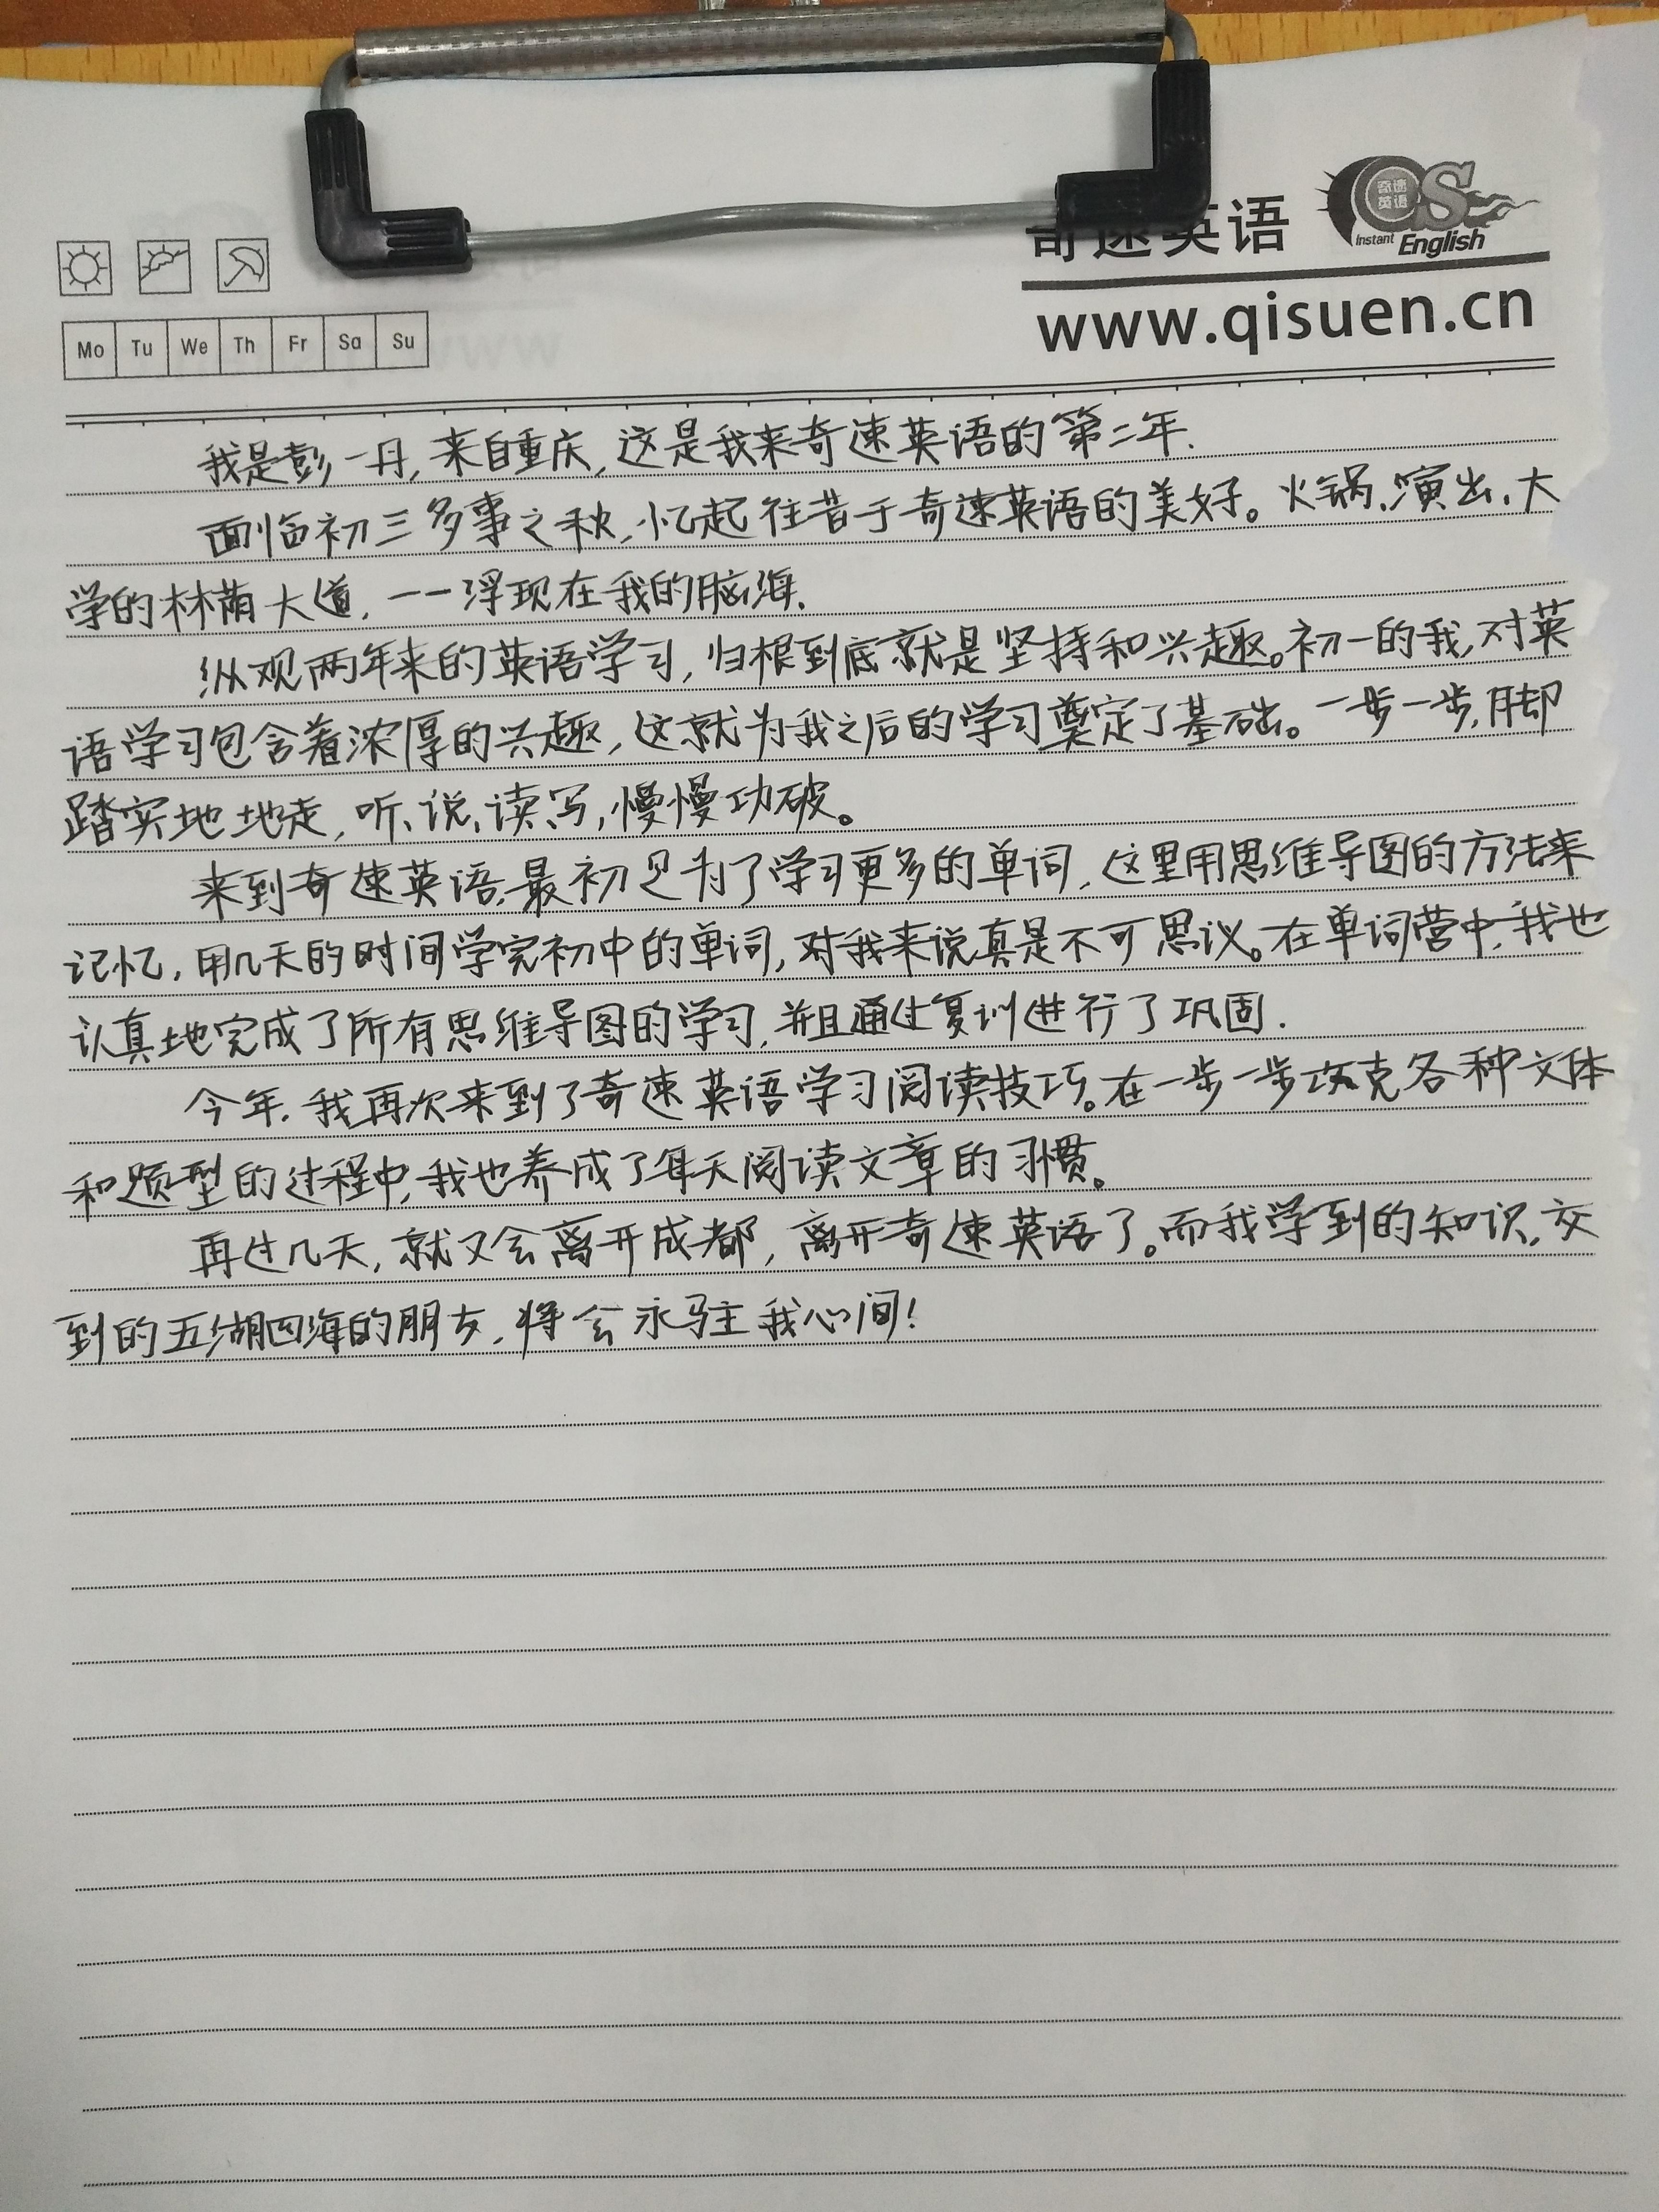 奇速英语
奇速英语
QS
Instant English
www.qisuen.cn
Mo Tu We Th Fr Sa Su
我是彭一丹,来自重庆,这是我来奇速英语的第二年.
面临初三多事之秋,忆起往昔于奇速英语的美好。火锅、演出、大
学的林荫大道,一一浮现在我的脑海.
纵观两年来的英语学习,归根到底就是坚持和兴趣。初一的我,对英
语学习包含着浓厚的兴趣,这就为我之后的学习奠定了基础。一步一步,脚
踏实地地走,听、说、读、写,慢慢功破。
来到奇速英语,最初是为了学习更多的单词,这里用思维导图的方法来
记忆,用几天的时间学完初中的单词,对我来说真是不可思议。在单词营中,我也
认真地完成了所有思维导图的学习,并且通过复训进行了巩固.
今年,我再次来到了奇速英语学习阅读技巧。在一步一步攻克各种文体
和题型的过程中,我也养成了每天阅读文章的习惯。
再过几天,就又会离开成都,离开奇速英语了。而我学到的知识,交
到的五湖四海的朋友,将会永驻我心间!